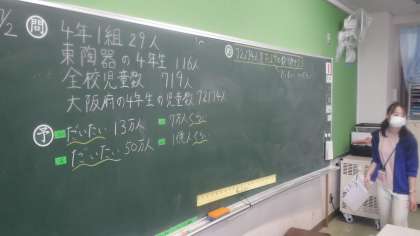 1/2
問 4年1組 29人
東陶器の4年生 116人
全校児童数 719人
大阪府の4年生の児童数 72174人
予 だいたい 13万人
だいたい 50万人
7万人くらい
1億人くらい